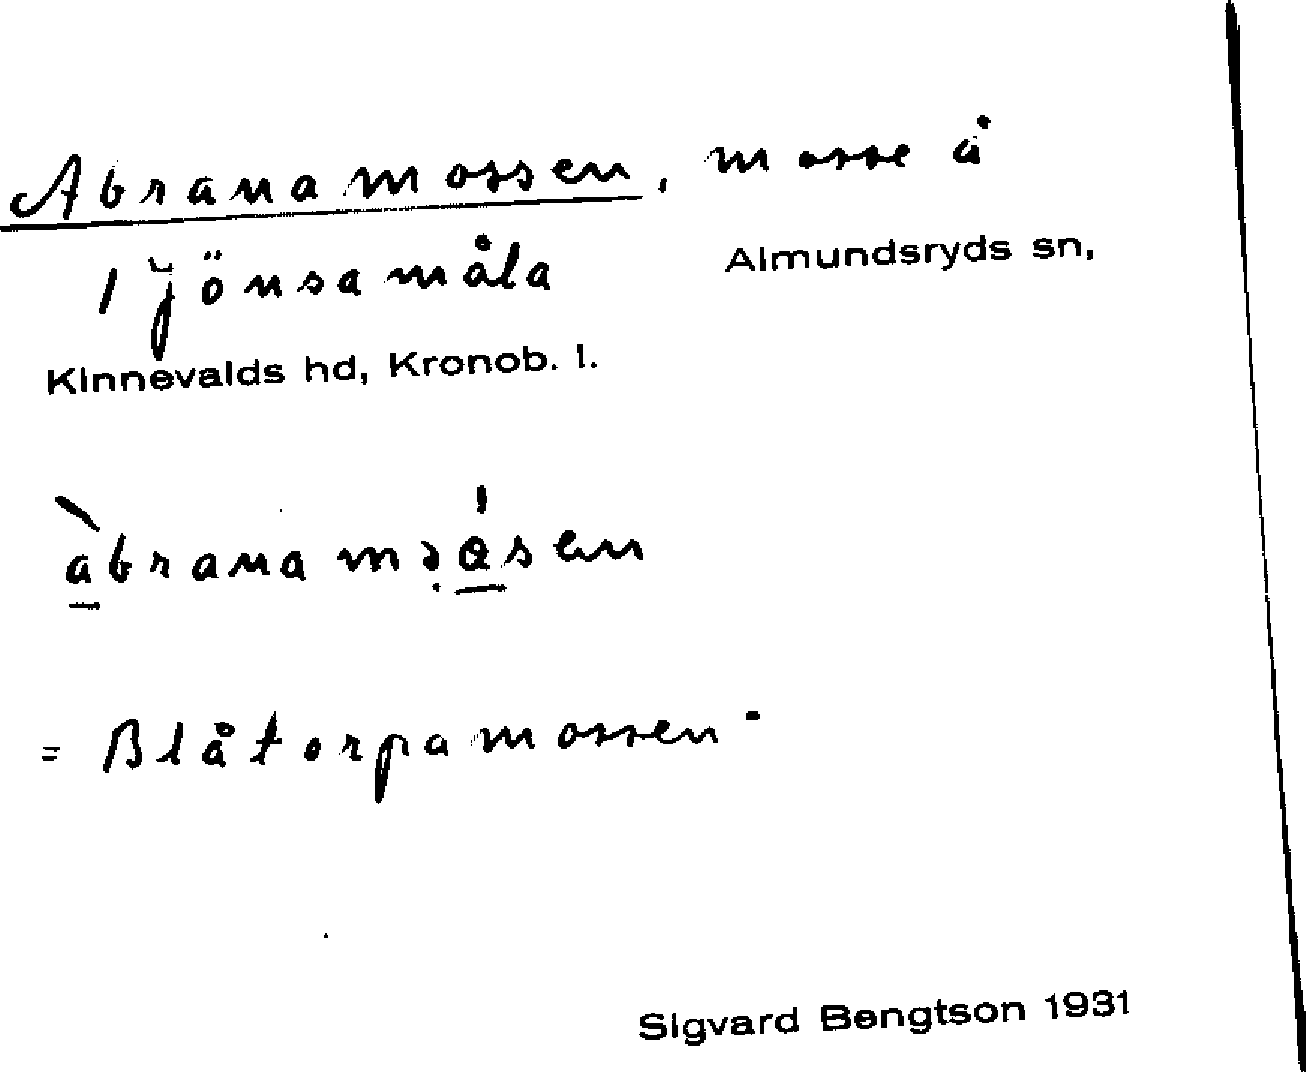 Abranamossen, mosse å
1 Jönsamåla Almundsryds sn,
Kinnevalds hd, Kronob. l.
= Blåtorpamossen
Sigvard Bengtson 1931